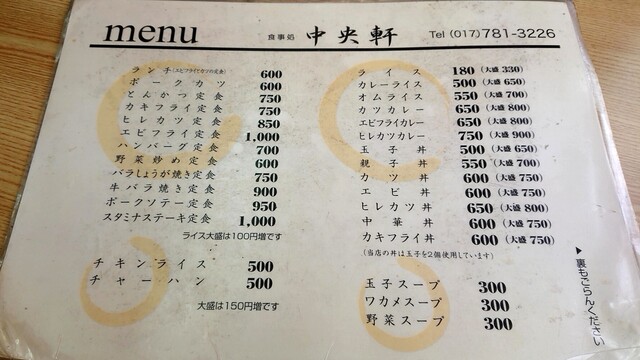 menu 食事処 中央軒 Tel (017)781-3226
ランチ(エビフライとカツの定食) 600
ポークカツ 600
とんかつ定食 750
カキフライ定食 750
ヒレカツ定食 850
エビフライ定食 1,000
ハンバーグ定食 700
野菜炒め定食 600
バラしょうが焼き定食 750
牛バラ焼き定食 900
ポークソテー定食 950
スタミナステーキ定食 1,000
ライス大盛は100円増です
チキンライス 500
チャーハン 500
大盛は150円増です
ライス 180 (大盛 330)
カレーライス 500 (大盛 650)
オムライス 550 (大盛 700)
カツカレー 650 (大盛 800)
エビフライカレー 650 (大盛 800)
ヒレカツカレー 750 (大盛 900)
玉子丼 500 (大盛 650)
親子丼 550 (大盛 700)
カツ丼 600 (大盛 750)
エビ丼 600 (大盛 750)
ヒレカツ丼 650 (大盛 800)
中華丼 600 (大盛 750)
カキフライ丼 600 (大盛 750)
(当店の丼は玉子を2個使用しています)
玉子スープ 300
ワカメスープ 300
野菜スープ 300
▶裏もごらんください